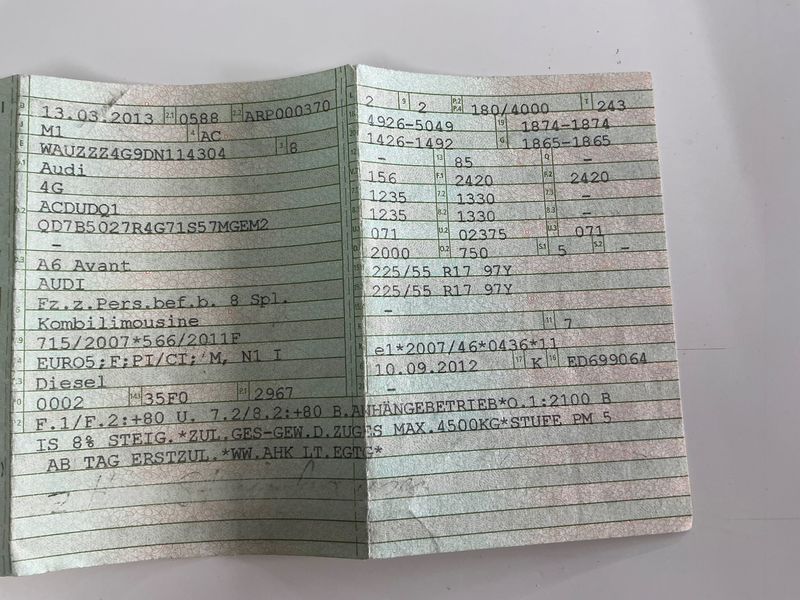 13.03.2013 2.1 0588 2.2 ARP000370
M1 4 AC
WAUZZZ4G9DN114304 3 8
Audi
4G
ACDUDQ1
QD7B5027R4G71S57MGEM2
-
A6 Avant
AUDI
Fz.z.Pers.bef.b. 8 Spl.
Kombilimousine
715/2007*566/2011F
EURO5;F;PI/CI; M, N1 I
Diesel
0002 14.1 35F0 P.1 2967
2 9 2 P.2 P.4 180/4000 T 243
4926-5049 19 1874-1874
1426-1492 G 1865-1865
- 13 85 Q -
156 F.1 2420 F.2 2420
1235 7.2 1330 7.3 -
1235 8.2 1330 8.3 -
071 U.2 02375 U.3 071
2000 O.2 750 S.1 5 S.2 -
225/55 R17 97Y
225/55 R17 97Y
-
11 7
e1*2007/46*0436*11
10.09.2012 17 K 16 ED699064
-
F.1/F.2:+80 U. 7.2/8.2:+80 B.ANHÄNGEBETRIEB*O.1:2100 B
IS 8% STEIG.*ZUL.GES-GEW.D.ZUGES MAX.4500KG*STUFE PM 5
AB TAG ERSTZUL.*WW.AHK LT.EGTG*